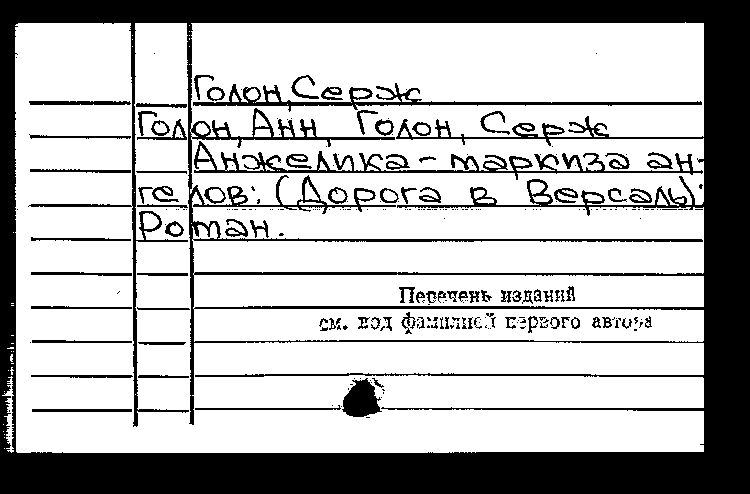 Голон, Серж
Голон, Анн, Голон, Серж
Анжелика - маркиза ан-
гелов: (Дорога в Версаль):
Роман.
Перечень изданий
см. под фамилией первого автора